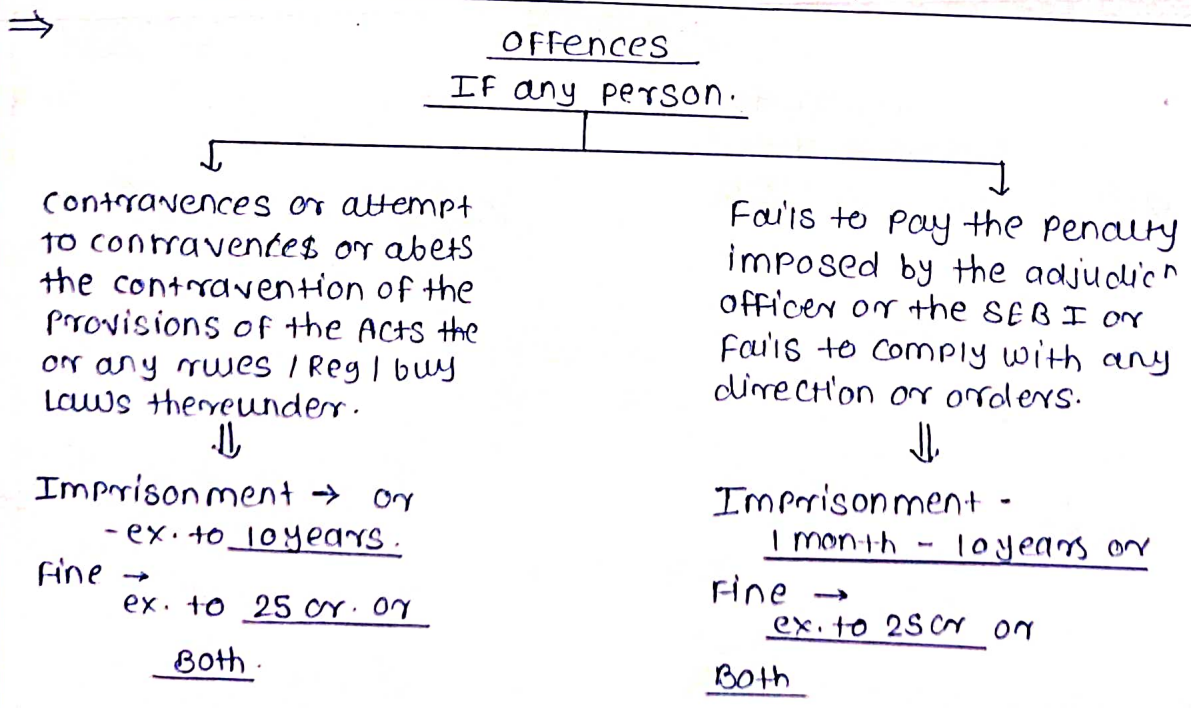 ⇒
Offences
If any person.
Contravences or attempt
to contravences or abets
the contravention of the
Provisions of the Acts the
or any rules / Reg / buy
Laws thereunder.
⇓
Imprisonment → or
- ex. to 10 years.
Fine →
ex. to 25 cr. or
Both.
Fails to Pay the Penalty
imposed by the adjudicⁿ
officer or the SEBI or
Fails to comply with any
direction or orders.
⇓
Imprisonment -
1 month - 10 years or
Fine →
ex. to 25 cr or
Both